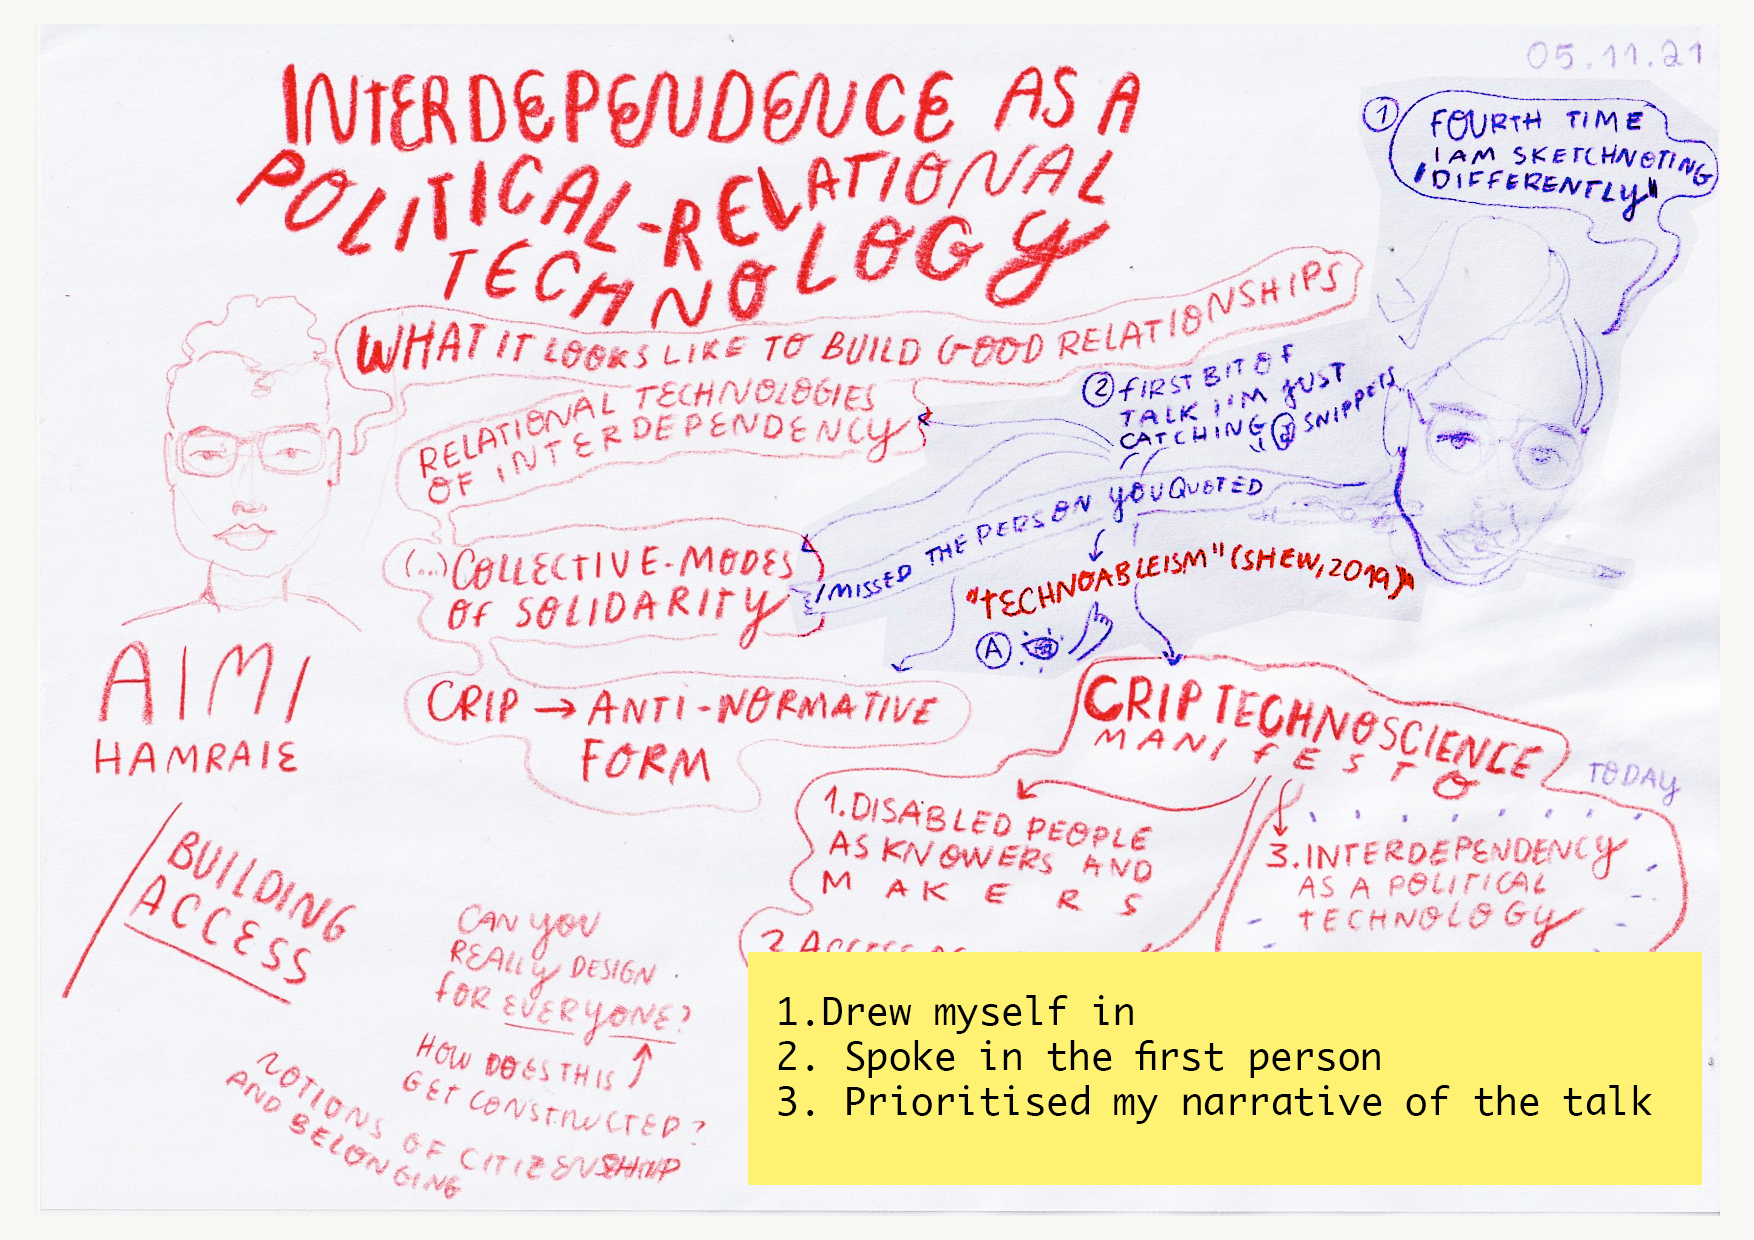 05.11.21
INTERDEPENDENCE AS A
POLITICAL-RELATIONAL
TECHNOLOGY
1 FOURTH TIME
I AM SKETCHNOTING
"DIFFERENTLY"
WHAT IT LOOKS LIKE TO BUILD GOOD RELATIONSHIPS
RELATIONAL TECHNOLOGIES
OF INTERDEPENDENCY
2 FIRST BIT OF
TALK I'M JUST
CATCHING SNIPPETS
I MISSED THE PERSON YOU QUOTED
(...) COLLECTIVE-MODES
OF SOLIDARITY
"TECHNOABLEISM" (SHEW, 2019)"
A
AIMI
HAMRAIE
CRIP → ANTI-NORMATIVE
FORM
CRIP TECHNOSCIENCE
MANIFESTO
TODAY
1. DISABLED PEOPLE
AS KNOWERS AND
MAKERS
3. INTERDEPENDENCY
AS A POLITICAL
TECHNOLOGY
2 ACCESS AS
BUILDING
ACCESS
CAN YOU
REALLY DESIGN
FOR EVERYONE?
HOW DOES THIS
GET CONSTRUCTED?
NOTIONS OF CITIZENSHIP
AND BELONGING
1.Drew myself in
2. Spoke in the first person
3. Prioritised my narrative of the talk